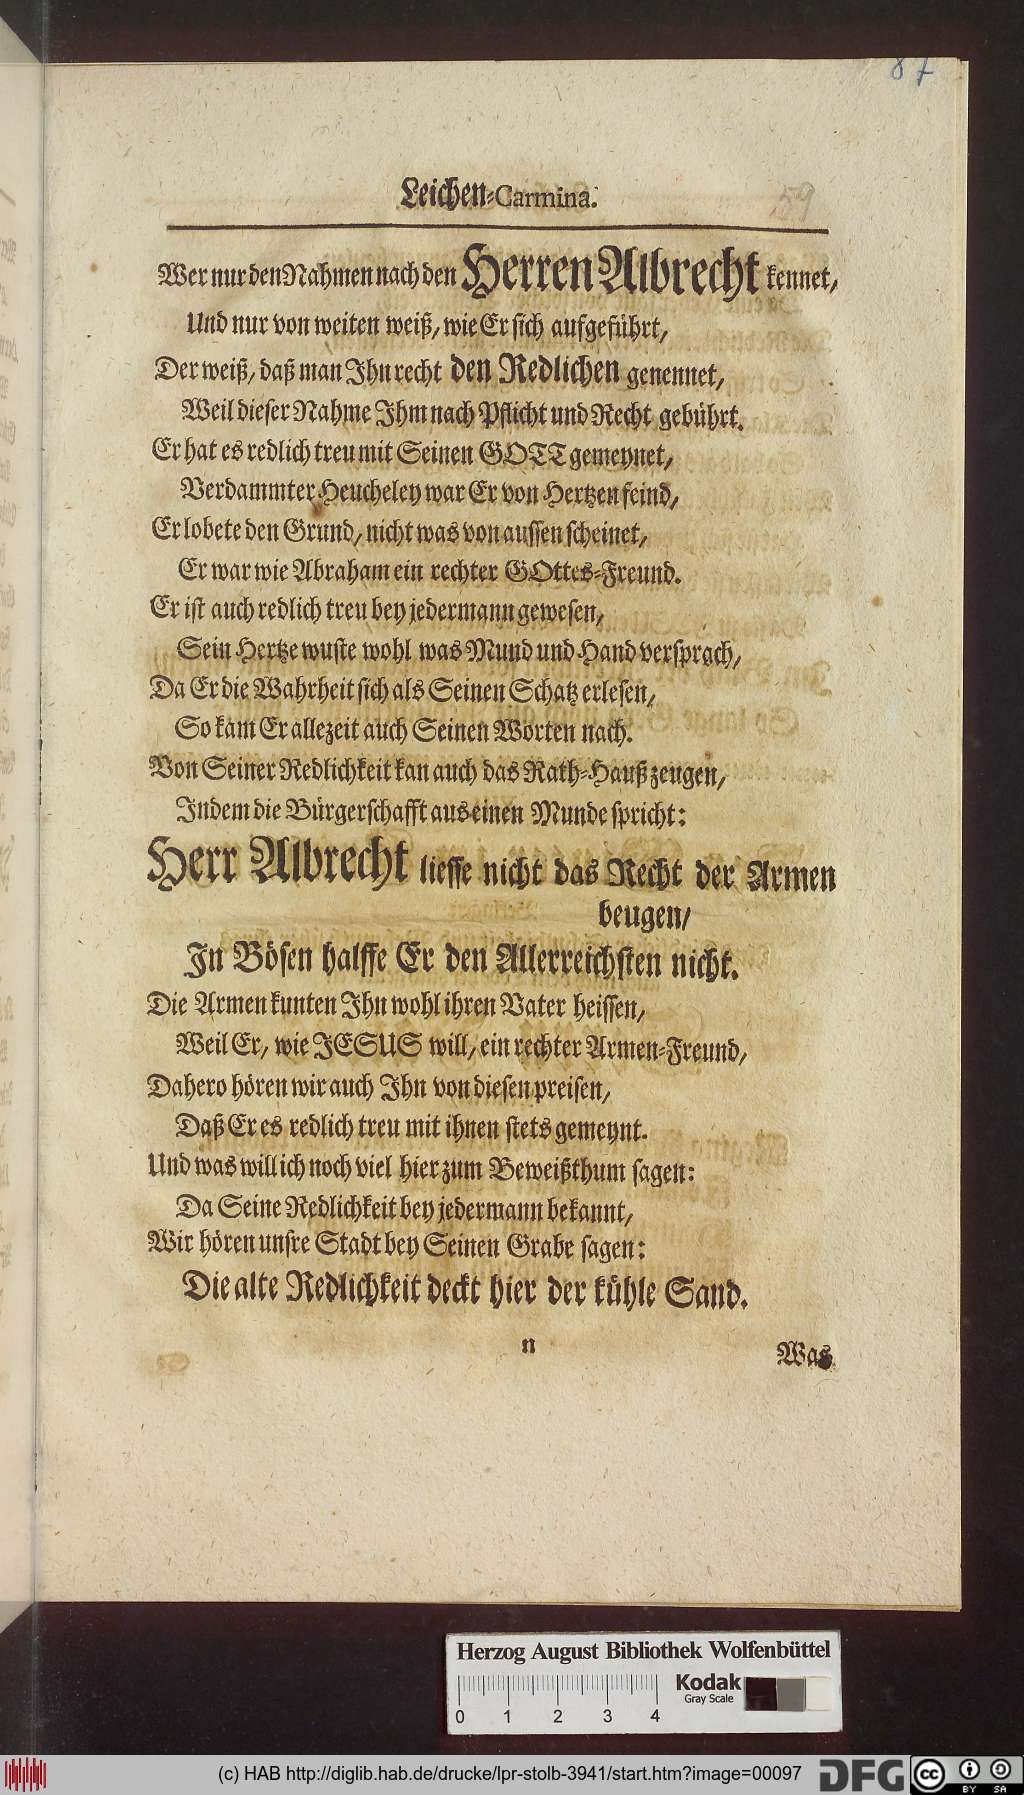 87
59
Leichen-Carmina.
Wer nur den Nahmen nach den Herren Albrecht kennet,
Und nur von weiten weiß, wie Er sich aufgeführt,
Der weiß, daß man Ihn recht den Redlichen genennet,
Weil dieser Nahme Ihm nach Pflicht und Recht gebührt.
Er hat es redlich treu mit Seinen GOTT gemeynet,
Verdammter Heucheley war Er von Hertzen feind,
Er lobete den Grund, nicht was von aussen scheinet,
Er war wie Abraham ein rechter GOttes-Freund.
Er ist auch redlich treu bey jedermann gewesen,
Sein Hertze wuste wohl was Mund und Hand versprach,
Da Er die Wahrheit sich als Seinen Schatz erlesen,
So kam Er allezeit auch Seinen Worten nach.
Von Seiner Redlichkeit kan auch das Rath-Hauß zeugen,
Indem die Bürgerschafft aus einen Munde spricht:
Herr Albrecht liesse nicht das Recht der Armen
beugen,
In Bösen halffe Er den Allerreichsten nicht.
Die Armen kunten Ihn wohl ihren Vater heissen,
Weil Er, wie JESUS will, ein rechter Armen-Freund,
Dahero hören wir auch Ihn von diesen preisen,
Daß Er es redlich treu mit ihnen stets gemeynt.
Und was will ich noch viel hier zum Beweißthum sagen:
Da Seine Redlichkeit bey jedermann bekannt,
Wir hören unsre Stadt bey Seinen Grabe sagen:
Die alte Redlichkeit deckt hier der kühle Sand.
n
Was
Herzog August Bibliothek Wolfenbüttel
Kodak
Gray Scale
0 1 2 3 4
(c) HAB http://diglib.hab.de/drucke/lpr-stolb-3941/start.htm?image=00097
DFG
cc BY SA